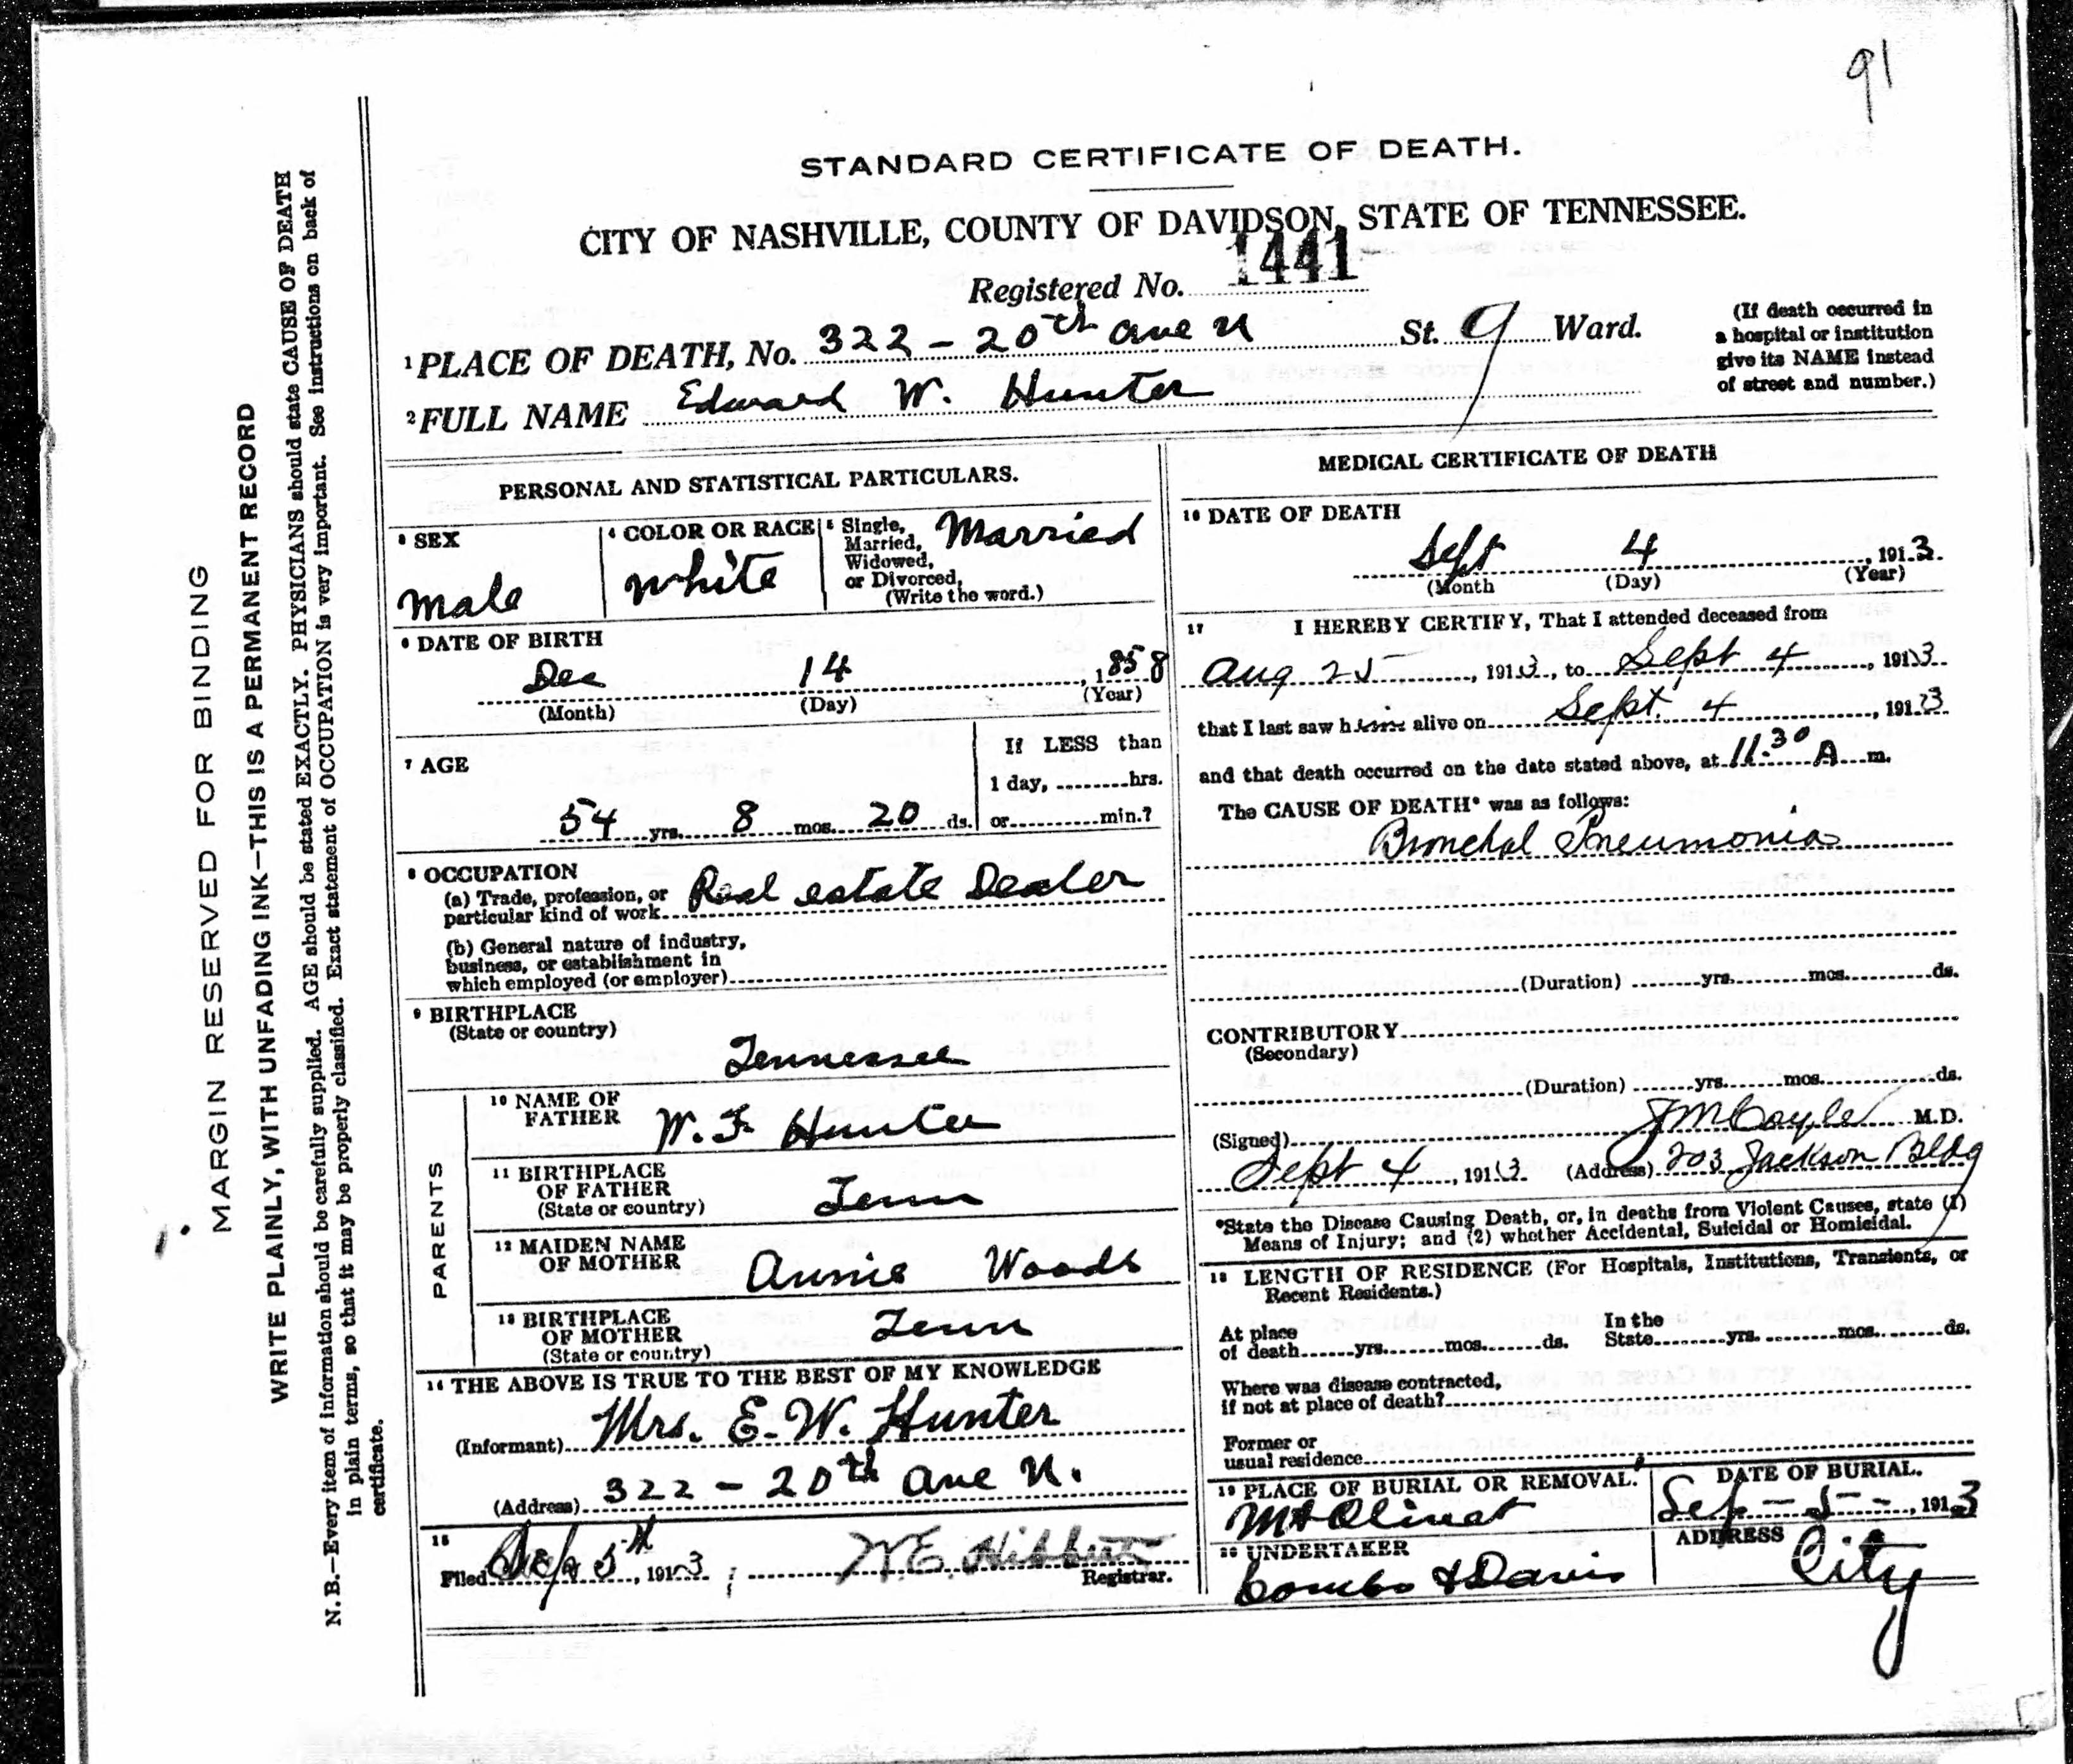 91
STANDARD CERTIFICATE OF DEATH.
CITY OF NASHVILLE, COUNTY OF DAVIDSON, STATE OF TENNESSEE.
Registered No. 1441
1 PLACE OF DEATH, No. 322 - 20th ave N St. 9 Ward.
(If death occurred in
a hospital or institution
give its NAME instead
of street and number.)
2 FULL NAME Edward W. Hunter
PERSONAL AND STATISTICAL PARTICULARS.
3 SEX
male
4 COLOR OR RACE
white
5 Single,
Married,
Widowed,
or Divorced,
(Write the word.)
Married
6 DATE OF BIRTH
Dec 14, 1858
(Month) (Day) (Year)
7 AGE
54 yrs. 8 mos. 20 ds.
If LESS than
1 day, hrs.
or min.?
8 OCCUPATION
(a) Trade, profession, or
particular kind of work Real estate Dealer
(b) General nature of industry,
business, or establishment in
which employed (or employer)
9 BIRTHPLACE
(State or country)
Tennessee
PARENTS
10 NAME OF
FATHER W. F Hunter
11 BIRTHPLACE
OF FATHER
(State or country) Tenn
12 MAIDEN NAME
OF MOTHER Annie Woods
13 BIRTHPLACE
OF MOTHER
(State or country) Tenn
14 THE ABOVE IS TRUE TO THE BEST OF MY KNOWLEDGE
(Informant) Mrs. E. W. Hunter
(Address) 322 - 20th Ave N.
15
Filed Sep 5th, 1913; W. E. Hibbett
Registrar.
MEDICAL CERTIFICATE OF DEATH
16 DATE OF DEATH
Sept 4, 1913.
(Month (Day) (Year)
17 I HEREBY CERTIFY, That I attended deceased from
Aug 25, 1913, to Sept 4, 1913.
that I last saw him alive on Sept. 4, 1913
and that death occurred on the date stated above, at 11.30 A m.
The CAUSE OF DEATH* was as follows:
Bronchal Pneumonia
(Duration) yrs. mos. ds.
CONTRIBUTORY
(Secondary)
(Duration) yrs. mos. ds.
(Signed) J M Coyle M.D.
Sept 4, 1913 (Address) 203 Jackson Bldg
*State the Disease Causing Death, or, in deaths from Violent Causes, state (1)
Means of Injury; and (2) whether Accidental, Suicidal or Homicidal.
18 LENGTH OF RESIDENCE (For Hospitals, Institutions, Transients, or
Recent Residents.)
At place
of death yrs. mos. ds.
In the
State yrs. mos. ds.
Where was disease contracted,
if not at place of death?
Former or
usual residence
19 PLACE OF BURIAL OR REMOVAL.
Mt Olivet
DATE OF BURIAL.
Sep - 5 -, 1913
20 UNDERTAKER
Combs & Davis
ADDRESS
City
MARGIN RESERVED FOR BINDING
WRITE PLAINLY, WITH UNFADING INK—THIS IS A PERMANENT RECORD
N. B.—Every item of information should be carefully supplied. AGE should be stated EXACTLY. PHYSICIANS should state CAUSE OF DEATH
in plain terms, so that it may be properly classified. Exact statement of OCCUPATION is very important. See instructions on back of
certificate.